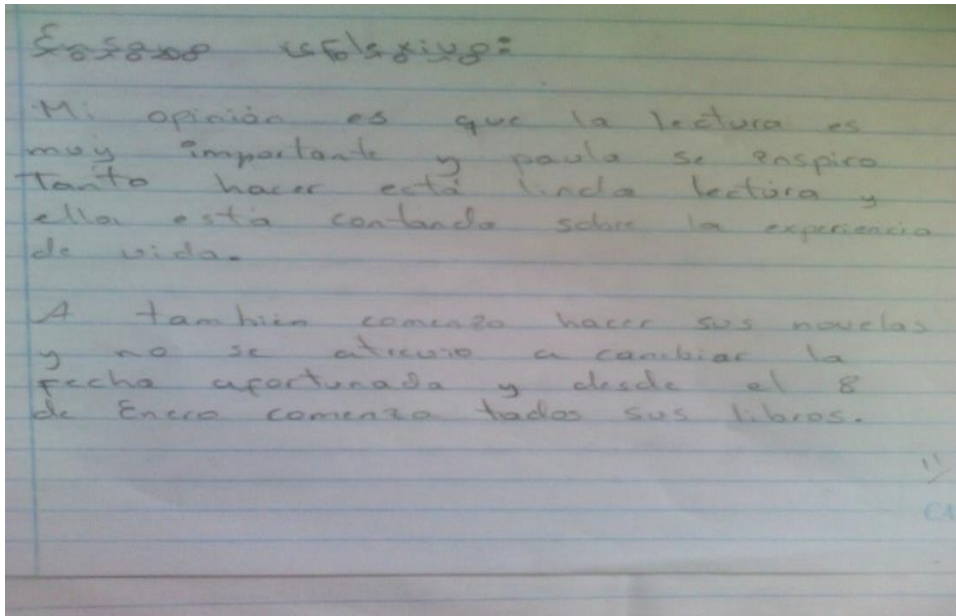 Ensayo reflexivo:
Mi opinión es que la lectura es
muy importante y paula se inspiro
Tanto hacer está linda lectúra y
ella esta contando sobre la experiencia
de vida.
A también comenzo hacer sus novelas
y no se atrevio a cambiar la
fecha afortunada y desde el 8
de Enero comenzo todos sus libros.